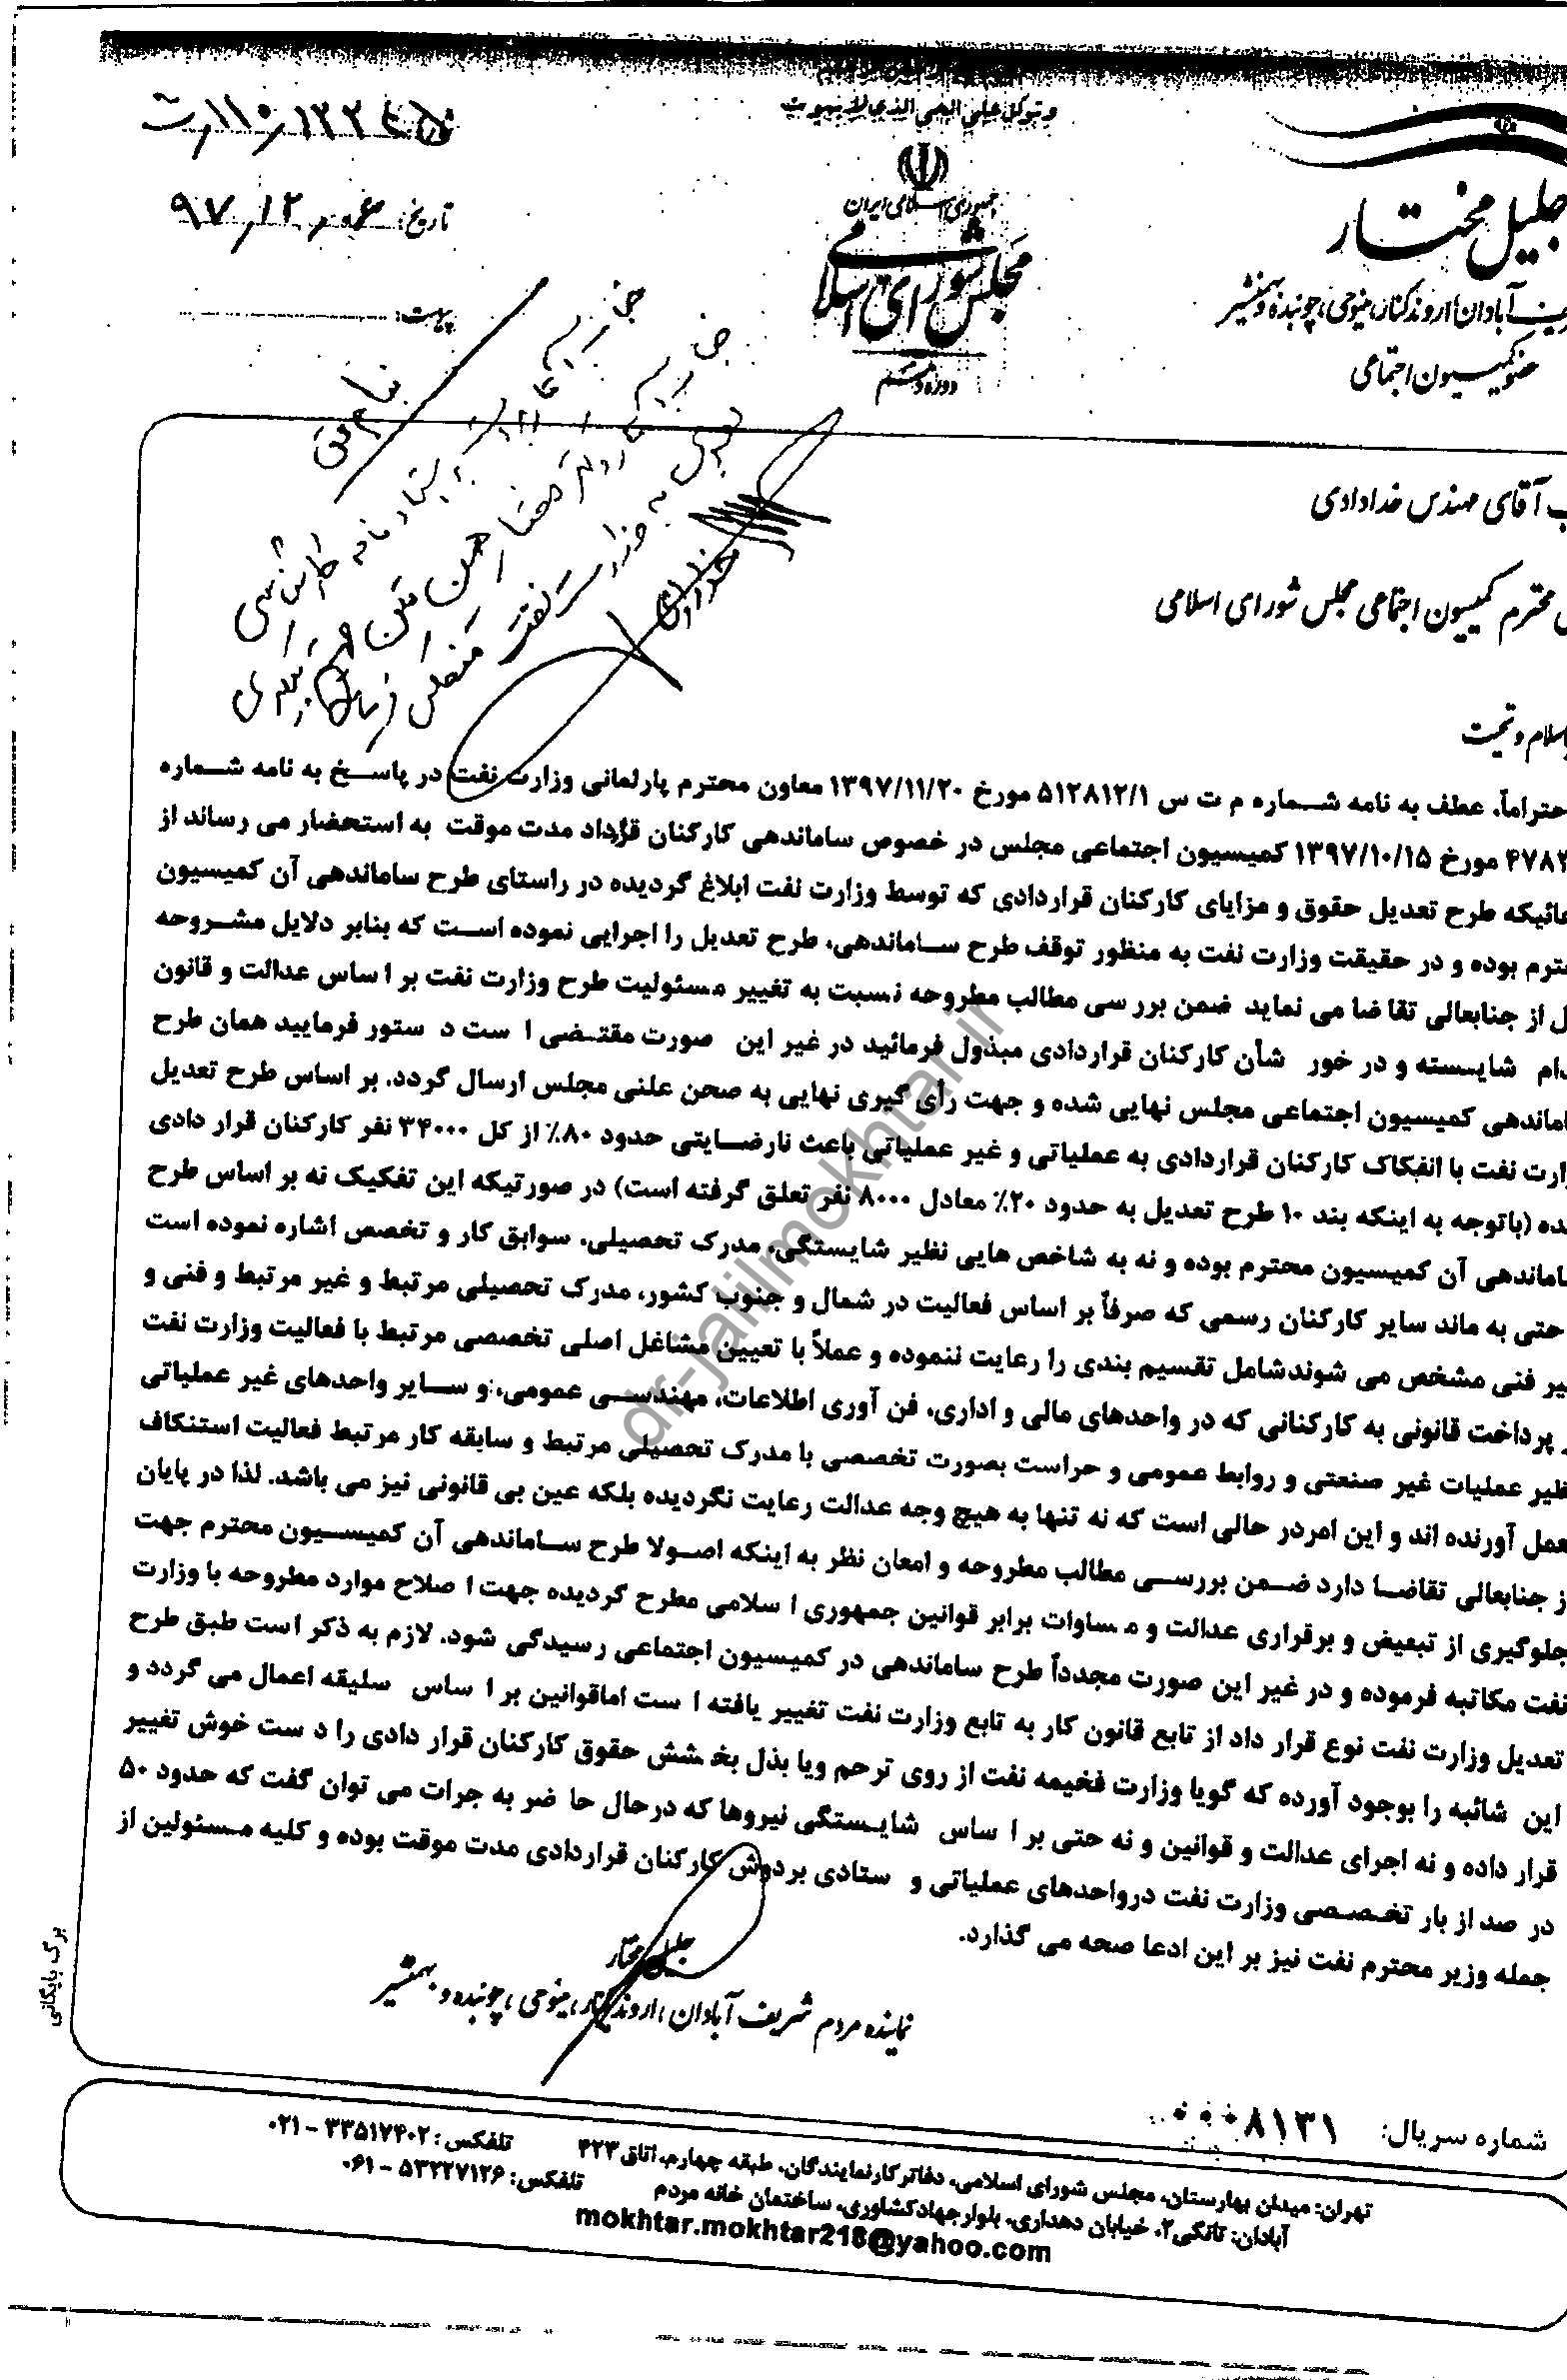 و توکل علی الحی الذی لا یموت
جمهوری اسلامی ایران
مجلس شورای اسلامی
دوره دهم
جلیل مختار
آبادان، اروندکنار، مینوحی، چوئبده و بهمنشیر
عضو کمیسیون اجتماعی
تاریخ: ۹۷/۱۲/۰۶
پیوست:
آقای مهندس خدادادی
محترم کمیسیون اجتماعی مجلس شورای اسلامی
سلام و تحیت
حتراماً، عطف به نامه شماره م ت س ۵۱۲۸۱۲/۱ مورخ ۱۳۹۷/۱۱/۲۰ معاون محترم پارلمانی وزارت نفت در پاسخ به نامه شماره
مورخ ۱۳۹۷/۱۰/۱۵ کمیسیون اجتماعی مجلس در خصوص ساماندهی کارکنان قرارداد مدت موقت به استحضار می رساند از
طرح تعدیل حقوق و مزایای کارکنان قراردادی که توسط وزارت نفت ابلاغ گردیده در راستای طرح ساماندهی آن کمیسیون
ترم بوده و در حقیقت وزارت نفت به منظور توقف طرح ساماندهی، طرح تعدیل را اجرایی نموده است که بنابر دلایل مشروحه
ل از جنابعالی تقاضا می نماید ضمن بررسی مطالب مطروحه نسبت به تغییر مسئولیت طرح وزارت نفت بر اساس عدالت و قانون
دام شایسته و در خور شأن کارکنان قراردادی مبذول فرمائید در غیر این صورت مقتضی است دستور فرمایید همان طرح
اماندهی کمیسیون اجتماعی مجلس نهایی شده و جهت رأی گیری نهایی به صحن علنی مجلس ارسال گردد. بر اساس طرح تعدیل
ارت نفت با انفکاک کارکنان قراردادی به عملیاتی و غیر عملیاتی باعث نارضایتی حدود ۸۰٪ از کل ۳۴۰۰۰ نفر کارکنان قرار دادی
ده (باتوجه به اینکه بند ۱۰ طرح تعدیل به حدود ۲۰٪ معادل ۸۰۰۰ نفر تعلق گرفته است) در صورتیکه این تفکیک نه بر اساس طرح
اماندهی آن کمیسیون محترم بوده و نه به شاخص هایی نظیر شایستگی، مدرک تحصیلی، سوابق کار و تخصص اشاره نموده است
حتی به ماند سایر کارکنان رسمی که صرفاً بر اساس فعالیت در شمال و جنوب کشور، مدرک تحصیلی مرتبط و غیر مرتبط و فنی و
یر فنی مشخص می شوندشامل تقسیم بندی را رعایت ننموده و عملاً با تعیین مشاغل اصلی تخصصی مرتبط با فعالیت وزارت نفت
پرداخت قانونی به کارکنانی که در واحدهای مالی و اداری، فن آوری اطلاعات، مهندسی عمومی، و سایر واحدهای غیر عملیاتی
ظیر عملیات غیر صنعتی و روابط عمومی و حراست بصورت تخصصی با مدرک تحصیلی مرتبط و سابقه کار مرتبط فعالیت استنکاف
عمل آورنده اند و این امردر حالی است که نه تنها به هیچ وجه عدالت رعایت نگردیده بلکه عین بی قانونی نیز می باشد. لذا در پایان
ز جنابعالی تقاضا دارد ضمن بررسی مطالب مطروحه و امعان نظر به اینکه اصولا طرح ساماندهی آن کمیسیون محترم جهت
جلوگیری از تبعیض و برقراری عدالت و مساوات برابر قوانین جمهوری اسلامی مطرح گردیده جهت اصلاح موارد مطروحه با وزارت
نفت مکاتبه فرموده و در غیر این صورت مجدداً طرح ساماندهی در کمیسیون اجتماعی رسیدگی شود. لازم به ذکر است طبق طرح
تعدیل وزارت نفت نوع قرار داد از تابع قانون کار به تابع وزارت نفت تغییر یافته است اماقوانین بر اساس سلیقه اعمال می گردد و
این شائبه را بوجود آورده که گویا وزارت فخیمه نفت از روی ترحم ویا بذل بخشش حقوق کارکنان قرار دادی را دست خوش تغییر
قرار داده و نه اجرای عدالت و قوانین و نه حتی بر اساس شایستگی نیروها که درحال حاضر به جرات می توان گفت که حدود ۵۰
در صد از بار تخصصی وزارت نفت درواحدهای عملیاتی و ستادی بردوش کارکنان قراردادی مدت موقت بوده و کلیه مسئولین از
جمله وزیر محترم نفت نیز بر این ادعا صحه می گذارد.
جلیل مختار
نماینده مردم شریف آبادان، اروندکنار، مینوحی، چوئبده و بهمنشیر
برگ بایگانی
شماره سریال: ۸۱۳۱
تهران: میدان بهارستان، مجلس شورای اسلامی، دفاتر کار نمایندگان، طبقه چهارم، اتاق ۴۲۳ تلفکس: ۳۳۵۱۷۴۰۲ - ۰۲۱
آبادان: تانکی۲، خیابان دهداری، بلوار جهادکشاوری، ساختمان خانه مردم تلفکس: ۵۳۲۲۷۱۲۶ - ۰۶۱
mokhtar.mokhtar218@yahoo.com
dr-jalilmokhtar.ir